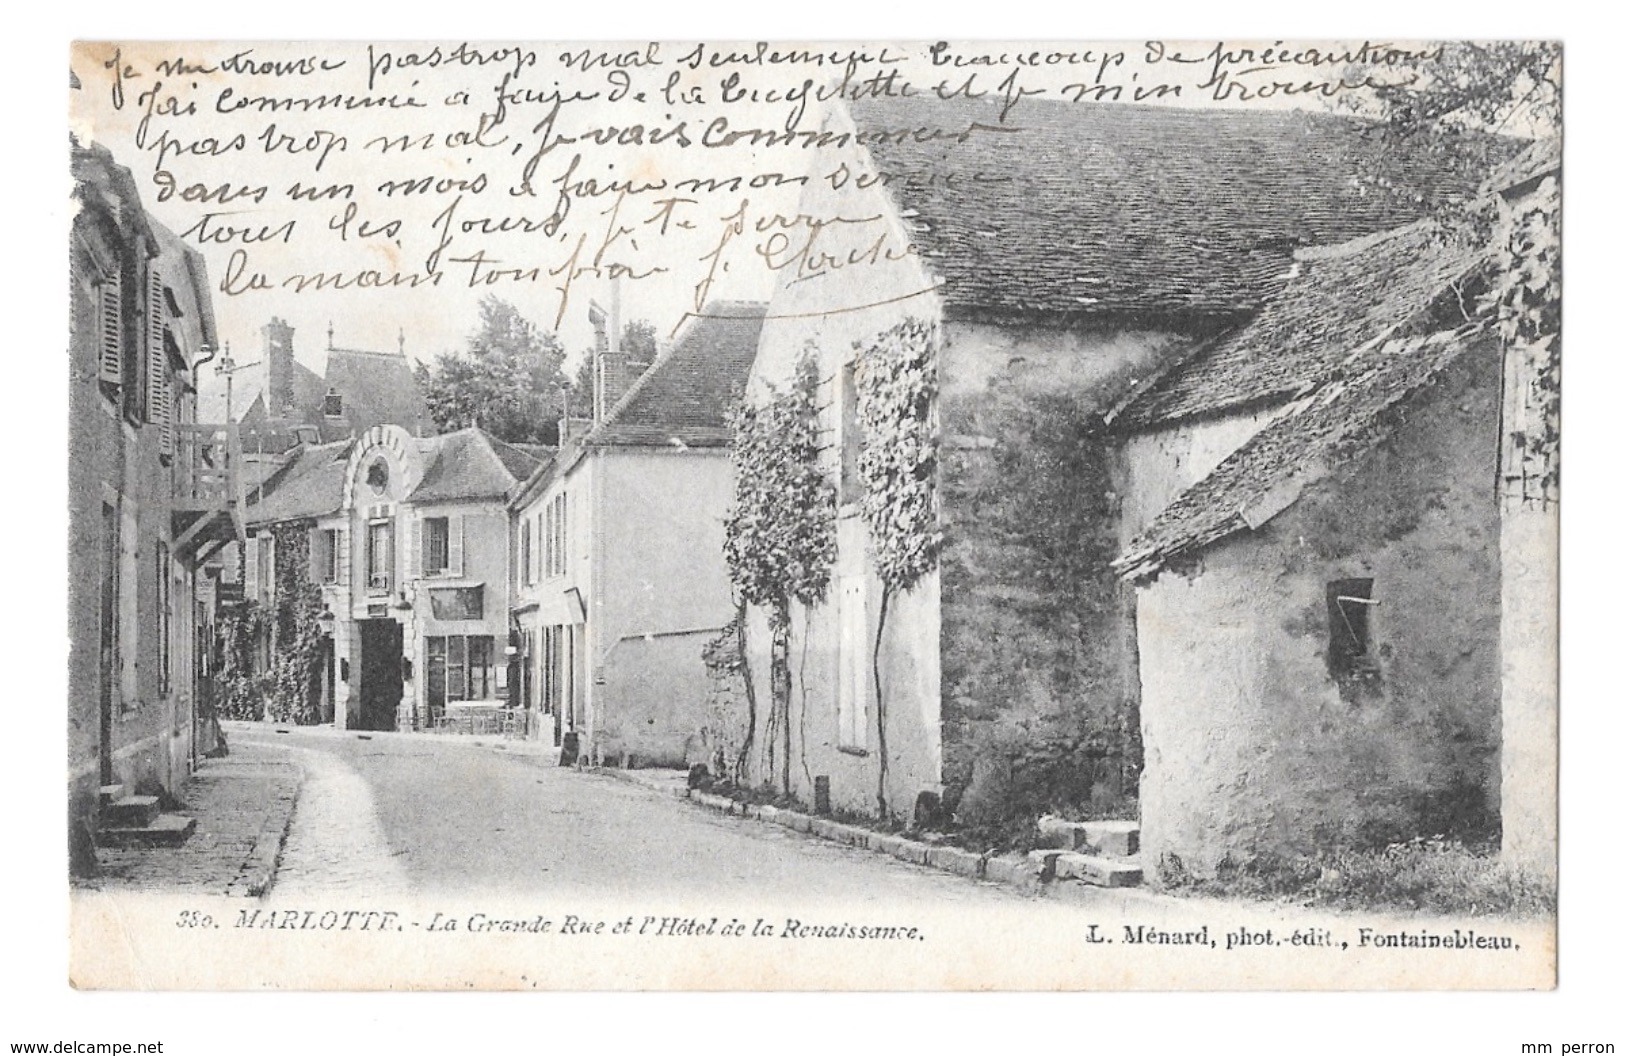 Je me trouve pas trop mal seulement beaucoup de précautions
J'ai commencé a faire de la bicyclette et je m'en trouve
pas trop mal, je vais commencer
dans un mois a faire mon service
tous les jours, je te serre
la main ton frère J.
380. MARLOTTE. - La Grande Rue et l'Hôtel de la Renaissance.
L. Ménard, phot.-édit., Fontainebleau.
www.delcampe.net
mm perron